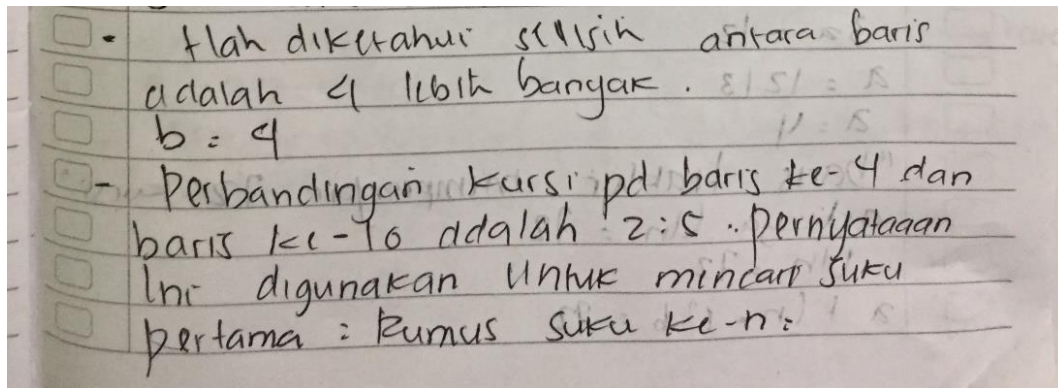 • tlah diketahui selisih antara baris
adalah 4 lebih banyak.
b = 4
- Perbandingan kursi pd baris ke-4 dan
baris ke-10 adalah 2:5. pernyataaan
Ini digunakan Untuk mincari suku
pertama : Rumus suku ke-n: